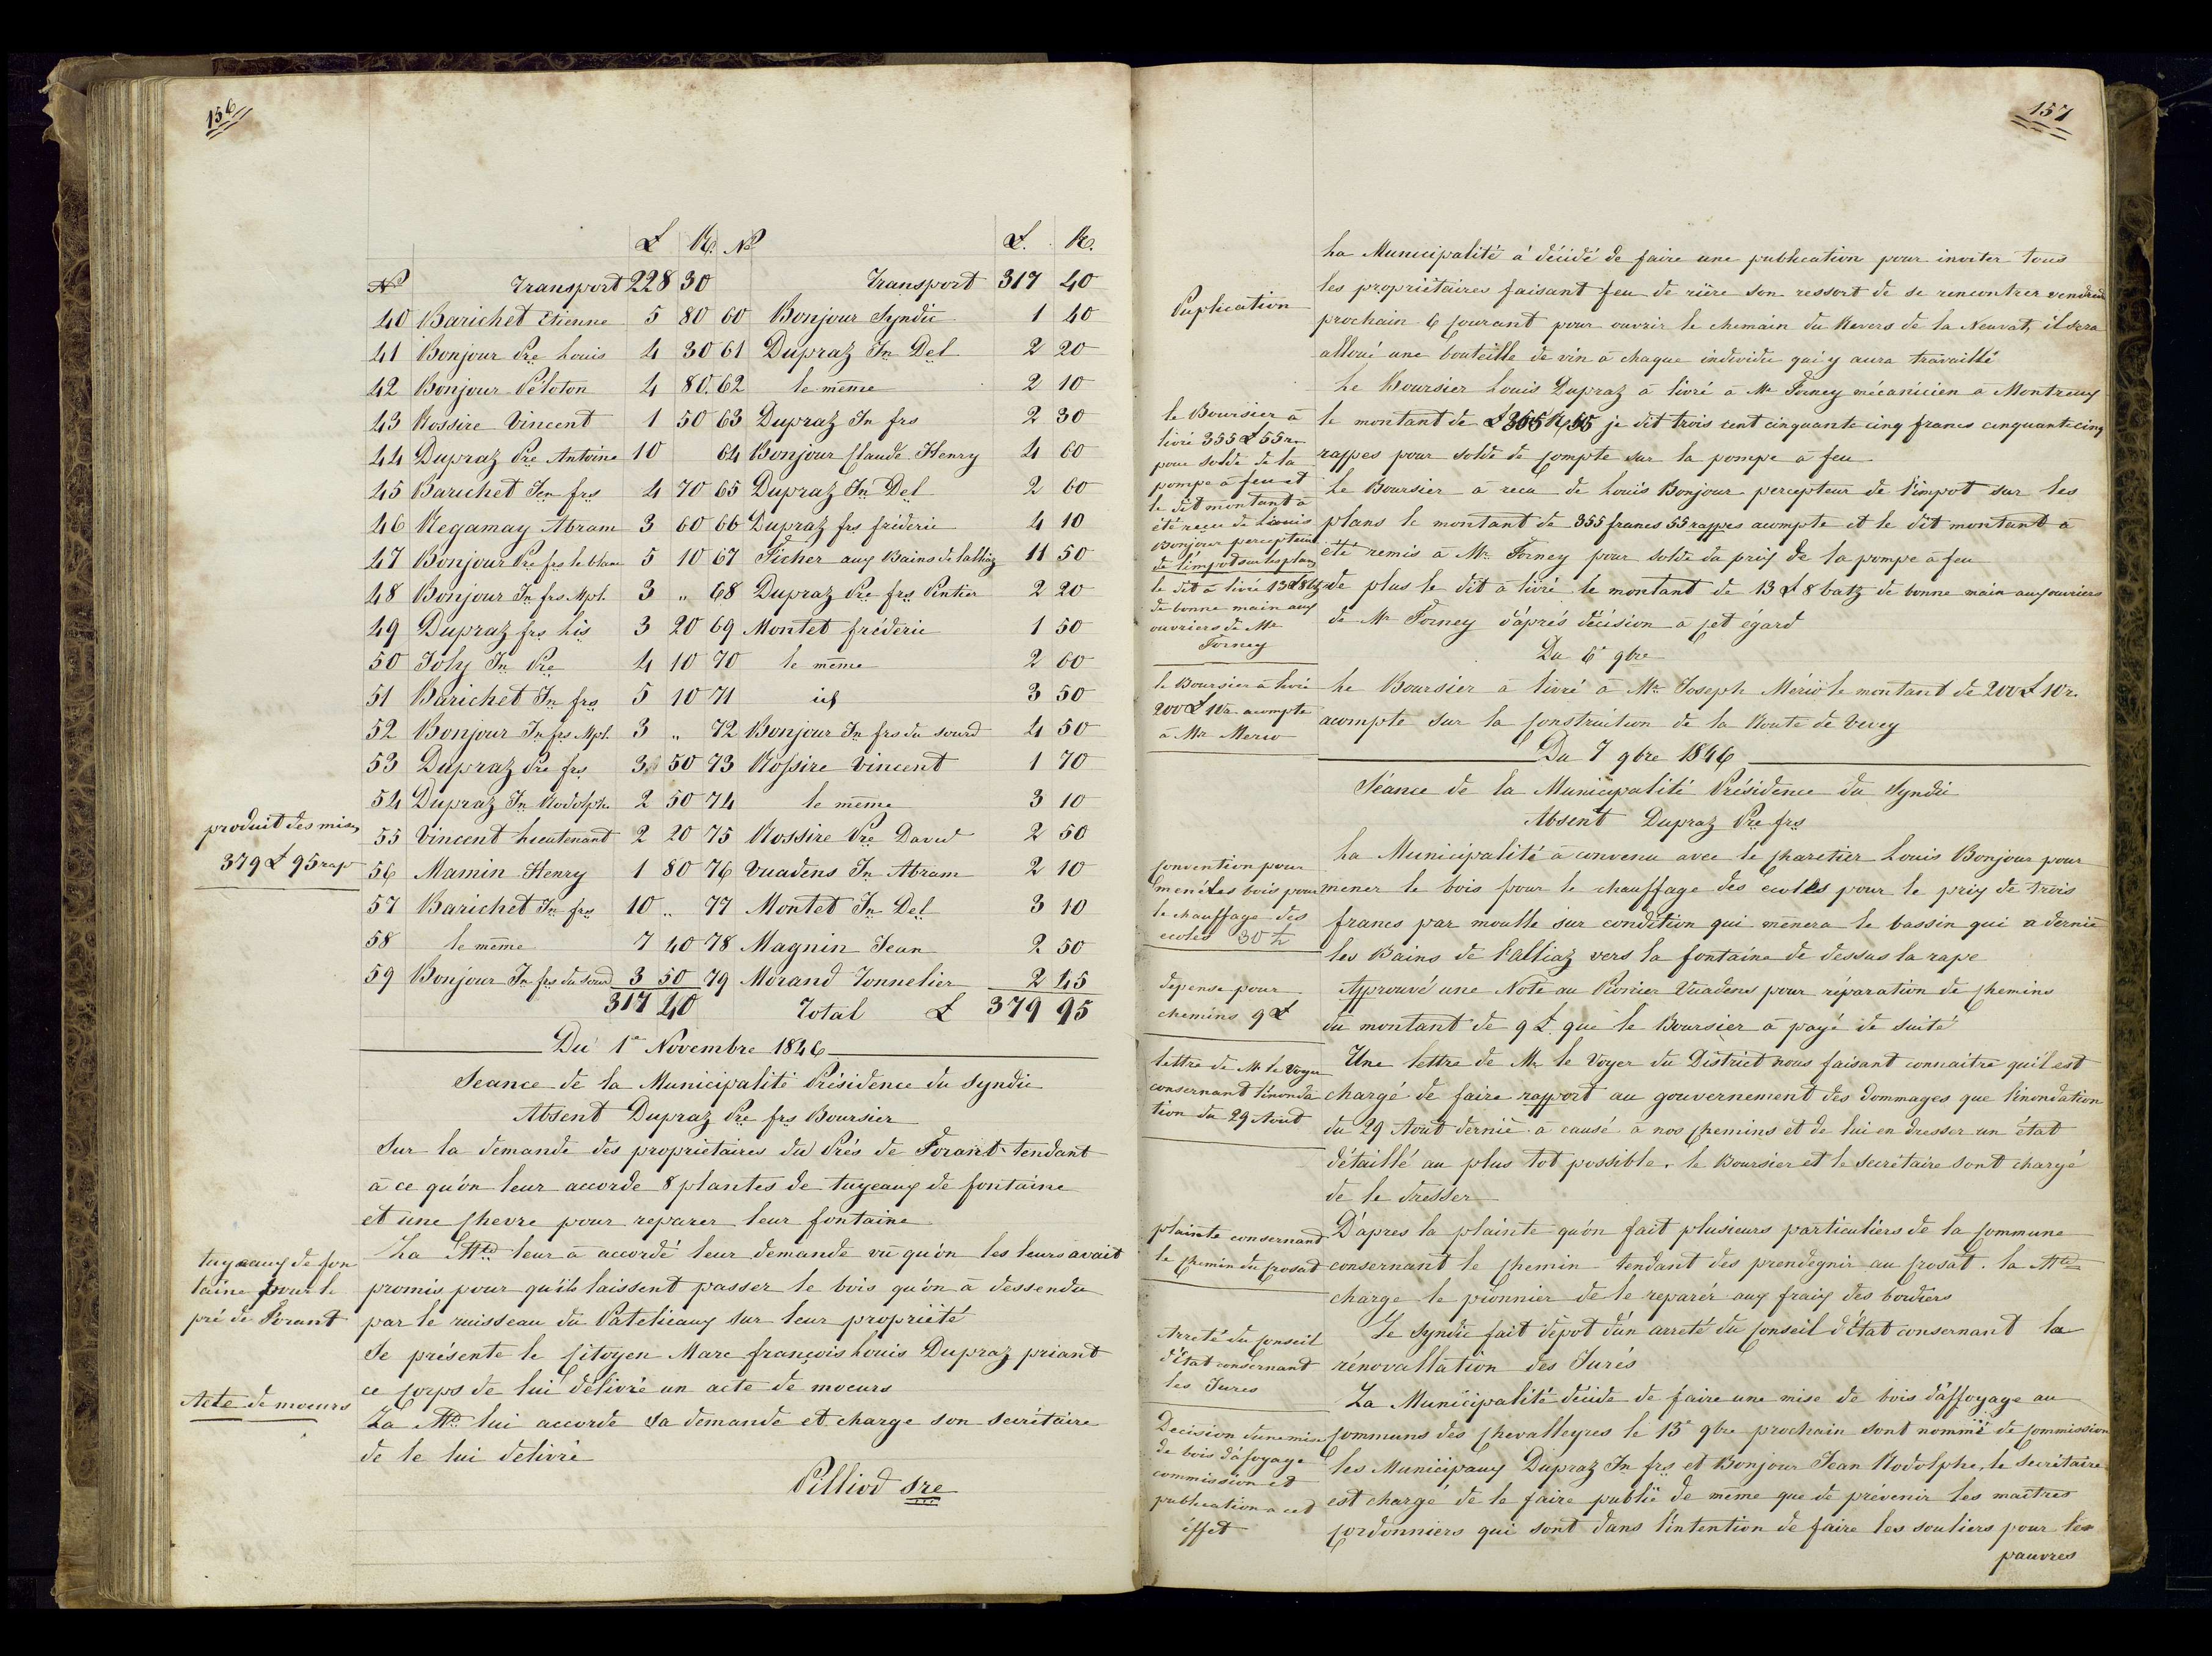 156
£ Rp. No £. Rp.
No Transport 228 30 Transport 317 40
40 Barichet Etienne 5 80 60 Bonjour Syndic 1 40
41 Bonjour Pre Louis 4 30 61 Dupraz Jn Del 2 20
42 Bonjour Péloton 4 80. 62 le même 2 10
43 Rossire Vincent 1 50 63 Dupraz Jn frs 2 30
44 Dupraz Pre Antoine 10 64 Bonjour Claude Henry 4 60
45 Barichet Jn frs 4 70 65 Dupraz Jn Del 2 60
46 Regamay Abram 3 60 66 Dupraz frs fréderic 4 10
47 Bonjour Pre frs le blanc 5 10 67 Ficher aux Bains de lalliaz 11 50
48 Bonjour Jn frs Mpl. 3 " 68 Dupraz Pre frs Pintier 2 20
49 Dupraz frs Lis 3 20 69 Montet fréderic 1 50
50 Joly Jn Pre 4 10 70 le même 2 60
51 Barichet Jn frs 5 10 71 id 3 50
52 Bonjour Jn frs Mpl. 3 " 72 Bonjour Jn frs du sourd 4 50
53 Dupraz Pre frs 3 50 73 Rossire Vincent 1 70
54 Dupraz Jn Rodolphe 2 50 74 le même 3 10
produit des mises
55 Vincent Lieutenant 2 20 75 Rossire Pre David 2 50
379 £ 95 rap
56 Mamin Henry 1 80 76 Vuadens Jn Abram 2 10
57 Barichet Jn frs 10 " 77 Montet Jn Del 3 10
58 le même 7 40 78 Magnin Jean 2 50
59 Bonjour Jn frs du sourd 3 50 79 Morand Tonnelier 2 45
317 40 Total £ 379 95
Du 1e Novembre 1846
Seance de la Municipalité Présidence du Syndic
Absent Dupraz Pre frs Boursier
Sur la demande des propriétaires du Prés de Forant tendant
à ce qu'on leur accorde 8 plantes de tuyeaux de fontaine
et une chevre pour reparer leur fontaine
La Mté leur à accordé leur demande vu qu'on les leurs avait
tuyeaux de fon
promis pour qu'ils laissent passer le bois qu'on à dessendu
taine pour le
par le ruisseau du Patelieaux sur leur propriété
pré de Forant
Se présente le Citoyen Marc françois Louis Dupraz priant
ce corps de lui délivré un acte de moeurs
Acte de moeurs
La Mté lui accorde sa demande et charge son secrétaire
de le lui delivré
Pilliod sre
157
La Municipalité à décidé de faire une publication pour inviter tous
les propriétaires faisant feu de rière son ressort de se rencontrer vendredi
Puplication
prochain 6 courant pour ouvrir le chemain du Revers de la Neuvat, il sera
alloué une bouteille de vin à chaque individu qui y aura travaillé
Le Boursier Louis Dupraz à livré à Mr Forney mécanicien à Montreux
le montant de £ 355 Rp 55 je dit trois cent cinquante cinq francs cinquante cinq
rappes pour solde de compte sur la pompe à feu
le Boursier à
livré 355 £ 55 r.
pour solde de la
pompe à feu et
le dit montant à
été reçu de Louis
Bonjour percepteur
de l'impot sur les plans
Le Boursier à reçu de Louis Bonjour percepteur de l'impot sur les
plans le montant de 355 francs 55 rappes acompte et le dit montant à
été remis à Mr. Forney pour solde du prix de la pompe à feu
de plus le dit à livré le montant de 13 £ 8 batz de bonne main aux ouvriers
de Mr Forney d'après décision à cet égard
le dit à livré 13 £ 8 btz
de bonne main aux
ouvriers de Mr
Forney
Du 6e 9bre
Le Boursier à livré à Mr Joseph Mério le montant de 200 £ 10 r.
acompte sur la construction de la Route de Vevey
le Boursier à livré
200 £ 10 r. acompte
à Mr Merio
Du 7 9bre 1846
Séance de la Municipalité Présidence du Syndic
Absent Dupraz Pre frs
La Municipalité à convenu avec le charetier Louis Bonjour pour
mener le bois pour le chauffage des ecoles pour le prix de trois
francs par moulle sur condition qui mènera le bassin qui a dernié
les Bains de l'alliaz vers la fontaine de dessus la rape
Convention pour
mener les bois pour
le chauffage des
ecoles 30 bz
Approuvé une Note au Pionier Vuadens pour réparation de chemins
du montant de 9 £. que le Boursier à payé de suite
depense pour
chemins 9 £
Une lettre de Mr le Voyer du District nous faisant connaitre qu'il est
chargé de faire rapport au gouvernement des dommages que l'inondation
du 29 Aout dernié à causé à nos chemins et de lui en dresser un état
détaillé au plus tot possible. le Boursier et le secrétaire sont chargé
de le dresser
lettre de Mr le Voyer
consernant l'inonda
tion du 29 Aout
D'apres la plainte qu'on fait plusieurs particuliers de la commune
consernant le chemin tendant des prendegnir au crosat. la Mté
charge le pionnier de le reparér aux fraix des bordiers
plainte consernand
le chemin du crosat
Le Syndic fait depot d'un arreté du conseil d'État consernant la
rénovallation des Jurés
Arreté du conseil
d'État consernant
les Jures
La Municipalité décide de faire une mise de bois d'affoyage au
communs des chevalleyres le 13e 9bre prochain sont nommé de commission
les Municipaux Dupraz Jn frs et Bonjour Jean Rodolphe, le secrétaire
est chargé de le faire publié de même que de prévenir les maîtres
cordonniers qui sont dans l'intention de faire les souliers pour les
pauvres
Decision d'une mise
de bois d'afoyage
commission et
publication a cet
éffet